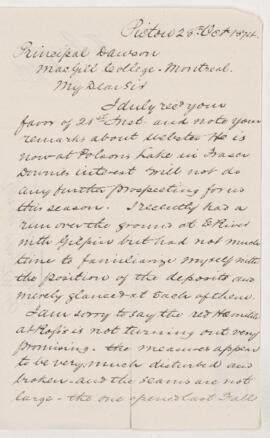 Pictou 28th Oct 1874.
Principal Dawson
MacGill College - Montreal.
My Dear Sir
I duly recd your
favor of 21st Inst. and note your
remarks about Webster He is
now at Polsons Lake in Fraser
Downes interest Will not do
any further prospecting for us
this season. I recently had a
run over the ground at E River
with Gilpin but had not much
time to familiarize myself with
the position of the deposits and
merely glanced at each of them.
I am sorry to say the red Hematite
at Ross's is not turning out very
promising. the measures appear
to be very much disturbed and
broken - and the seams are not
large - the one opened last Fall